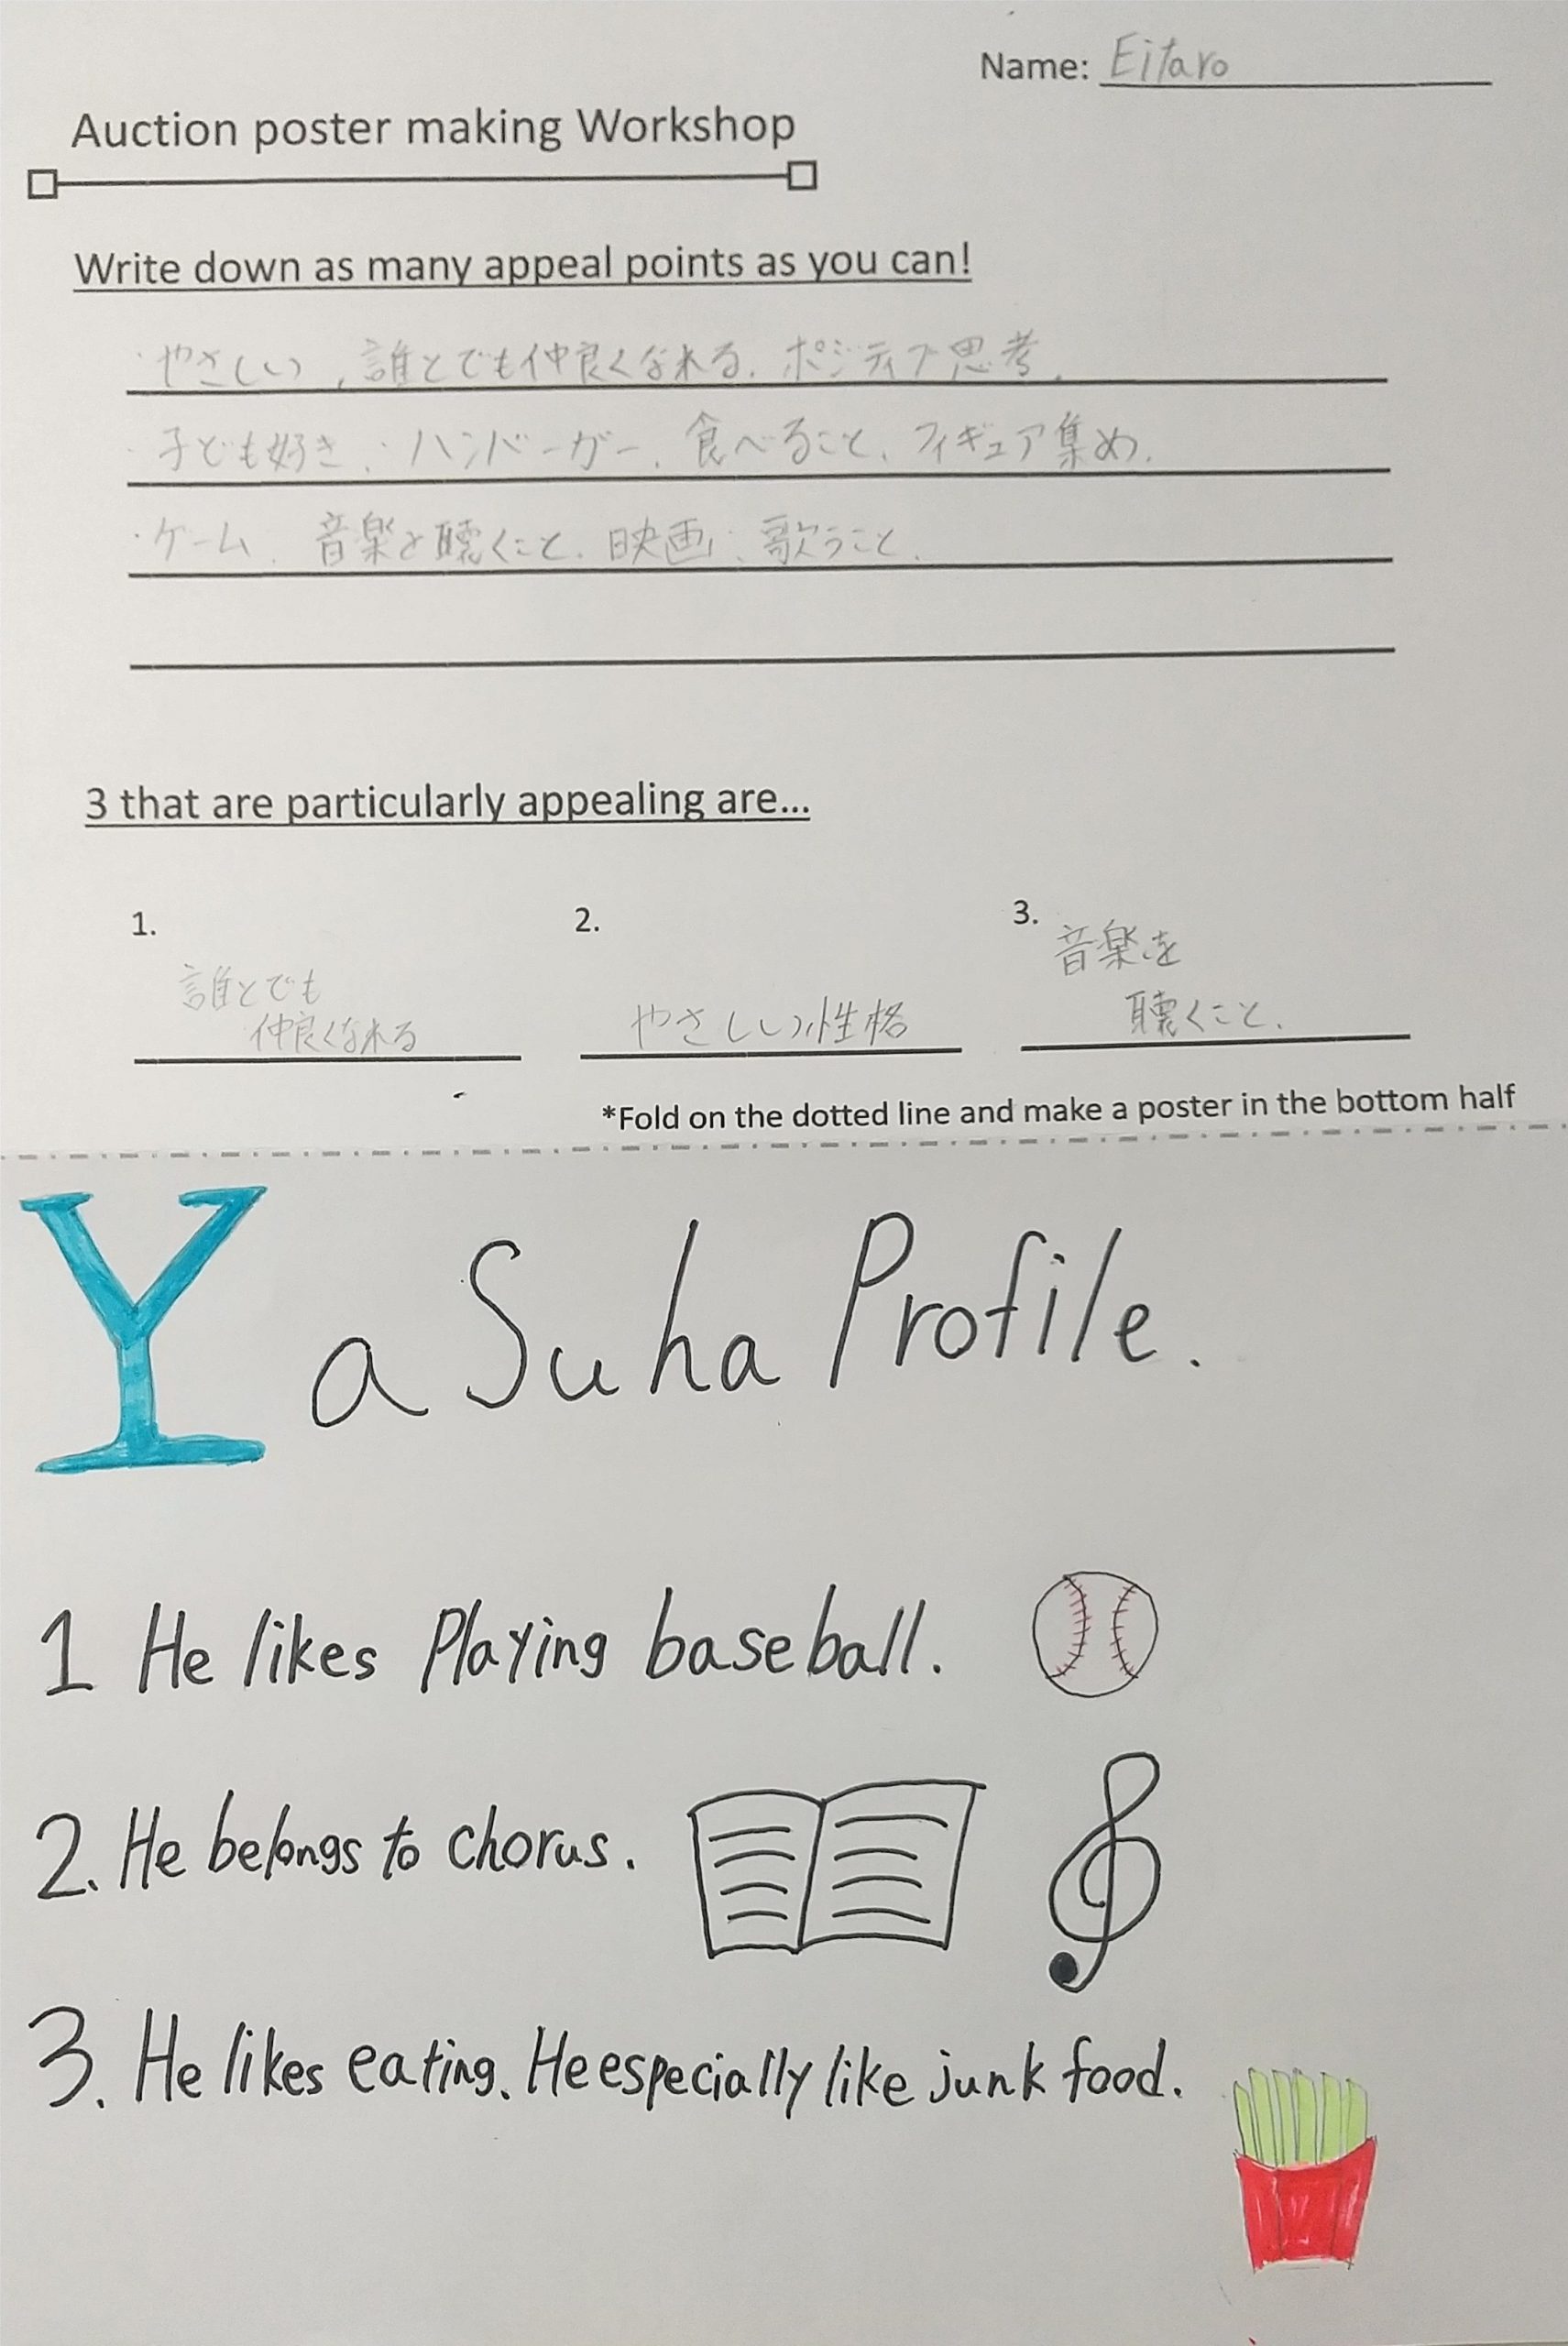 Name: Eitaro
Auction poster making Workshop
Write down as many appeal points as you can!
・やさしい、誰とでも仲良くなれる、ポジティブ思考、
・子ども好き、・ハンバーガー、食べること、フィギュア集め、
・ゲーム、音楽を聴くこと、映画、歌うこと、
3 that are particularly appealing are...
1.
誰とでも
仲良くなれる
2.
やさしい性格
3.
音楽を
聴くこと、
*Fold on the dotted line and make a poster in the bottom half
YaSuha Profile.
1 He likes Playing baseball.
2. He belongs to chorus.
3. He likes eating. He especially like junk food.